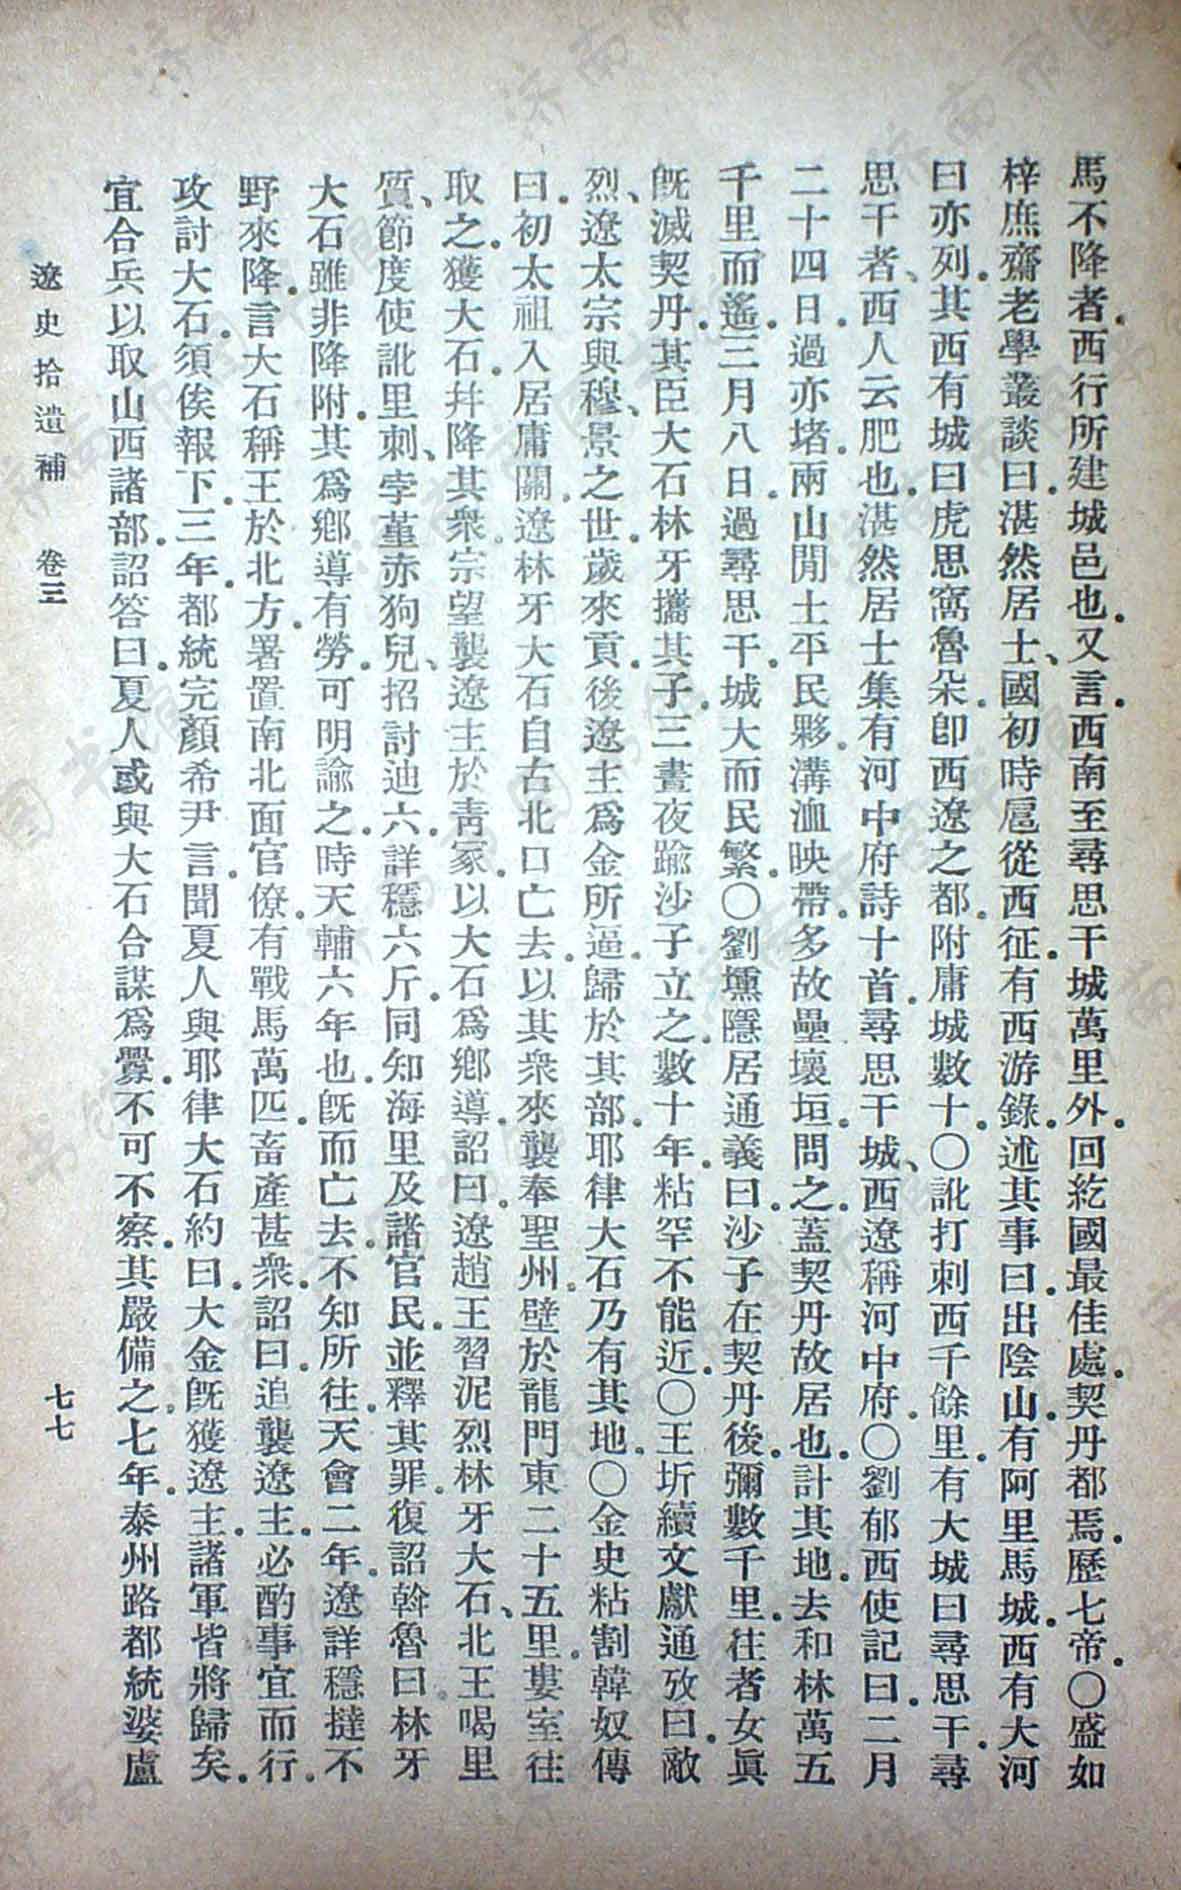 馬不降者。西行所建城邑也。又言。西南至尋思干城萬里外。回紇國最佳處。契丹都焉。歷七帝。〇盛如
梓庶齋老學叢談曰。湛然居士、國初時扈從西征。有西游錄。述其事曰。出陰山。有阿里馬城。西有大河
曰亦列。其西有城曰虎思窩魯朵。卽西遼之都。附庸城數十。〇訛打刺西千餘里。有大城曰尋思干。尋
思干者、西人云肥也。湛然居士集有河中府詩十首。尋思干城、西遼稱河中府。〇劉郁西使記曰。二月
二十四日。過亦堵。兩山閒土平民夥。溝洫映帶。多故壘壞垣。問之。蓋契丹故居也。計其地。去和林萬五
千里而遙。三月八日。過尋思干。城大而民繁。〇劉壎隱居通義曰。沙子在契丹後。彌數千里。往者女眞
旣滅契丹。其臣大石林牙攜其子。三晝夜踰沙子立之。數十年。粘罕不能近。〇王圻續文獻通攷曰。敵
烈、遼太宗與穆、景之世。歲來貢。後遼主爲金所逼。歸於其部。耶律大石乃有其地。〇金史粘割韓奴傳
曰。初太祖入居庸關。遼林牙大石自古北口亡去。以其衆來襲奉聖州。壁於龍門東二十五里。婁室往
取之。獲大石。幷降其衆。宗望襲遼主於靑冢。以大石爲鄕導。詔曰。遼趙王習泥烈林牙大石、北王喝里
質、節度使訛里刺、孛堇赤狗兒、招討迪六。詳穩六斤。同知海里及諸官民。並釋其罪。復詔斡魯曰。林牙
大石雖非降附。其爲鄕導有勞。可明諭之。時天輔六年也。旣而亡去。不知所往。天會二年。遼詳穩撻不
野來降。言大石稱王於北方。署置南北面官僚。有戰馬萬匹。畜產甚衆。詔曰。追襲遼主。必酌事宜而行。
攻討大石。須俟報下。三年。都統完顏希尹言。聞夏人與耶律大石約曰。大金旣獲遼主。諸軍皆將歸矣。
宜合兵以取山西諸部。詔答曰。夏人或與大石合謀爲釁。不可不察。其嚴備之。七年。泰州路都統婆盧
遼史拾遺補 卷三 七七